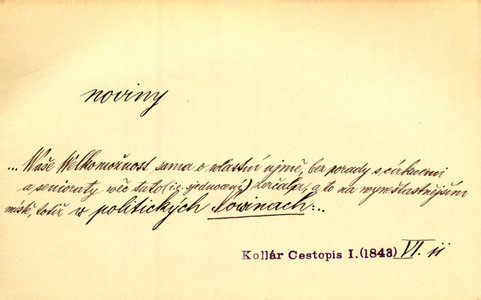 noviny
... Waše Welkomožnost sama o wlastní ujmě, bez porady s církwemi
a senioraty, wěc tuto (i.e. sjednocení) začala, a to na neyneštastnějším
místě, totiž w politických Nowinach...
Kollár Cestopis I.(1843) VI.